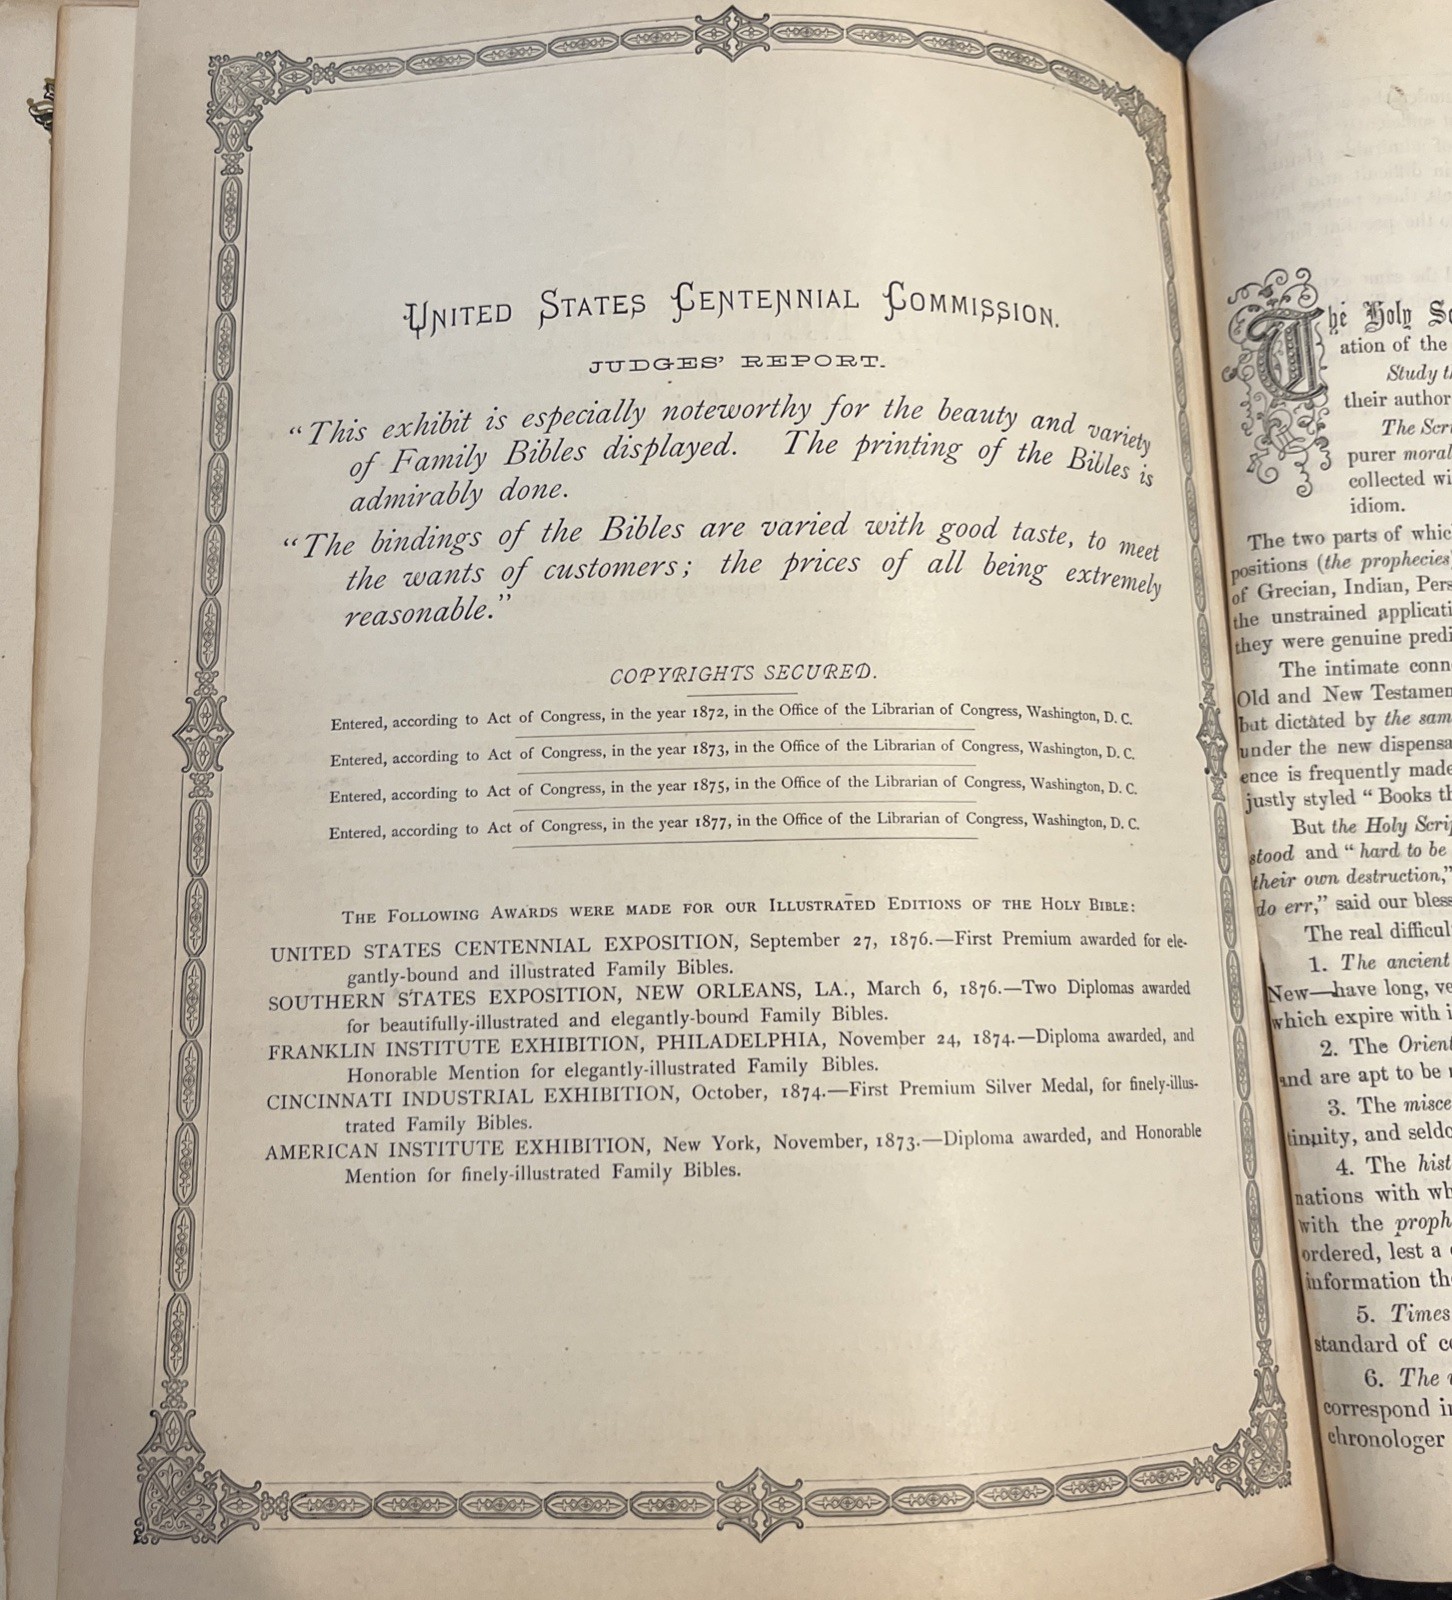 UNITED STATES CENTENNIAL COMMISSION.
JUDGES' REPORT.
"This exhibit is especially noteworthy for the beauty and variety
of Family Bibles displayed. The printing of the Bibles is
admirably done.
"The bindings of the Bibles are varied with good taste, to meet
the wants of customers; the prices of all being extremely
reasonable."
COPYRIGHTS SECURED.
Entered, according to Act of Congress, in the year 1872, in the Office of the Librarian of Congress, Washington, D. C.
Entered, according to Act of Congress, in the year 1873, in the Office of the Librarian of Congress, Washington, D. C.
Entered, according to Act of Congress, in the year 1875, in the Office of the Librarian of Congress, Washington, D. C.
Entered, according to Act of Congress, in the year 1877, in the Office of the Librarian of Congress, Washington, D. C.
THE FOLLOWING AWARDS WERE MADE FOR OUR ILLUSTRATED EDITIONS OF THE HOLY BIBLE:
UNITED STATES CENTENNIAL EXPOSITION, September 27, 1876.—First Premium awarded for ele-
gantly-bound and illustrated Family Bibles.
SOUTHERN STATES EXPOSITION, NEW ORLEANS, LA., March 6, 1876.—Two Diplomas awarded
for beautifully-illustrated and elegantly-bound Family Bibles.
FRANKLIN INSTITUTE EXHIBITION, PHILADELPHIA, November 24, 1874.—Diploma awarded, and
Honorable Mention for elegantly-illustrated Family Bibles.
CINCINNATI INDUSTRIAL EXHIBITION, October, 1874.—First Premium Silver Medal, for finely-illus-
trated Family Bibles.
AMERICAN INSTITUTE EXHIBITION, New York, November, 1873.—Diploma awarded, and Honorable
Mention for finely-illustrated Family Bibles.
The Holy
ation of the
Study
their
The
purer
collected
idiom.
The two parts of
positions (the prophecies
of Grecian, Indian,
the unstrained
they were genuine
The intimate
Old and New
but dictated by the
under the new
ence is frequently made
justly styled "Books
But the Holy
stood and "hard to be
their own destruction,"
do err," said our
The real
1. The ancient
New—have long,
which expire with
2. The
and are apt to be
3. The
tinuity, and
4. The
nations with
with the
ordered, lest a
information
5. Times
standard of
6. The
correspond
chronologer